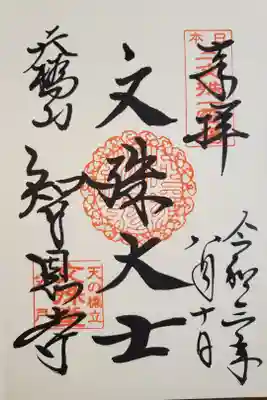 奉拝
令和三年
八月十日
文殊大士
天橋山
智恩寺
日本
天の橋立